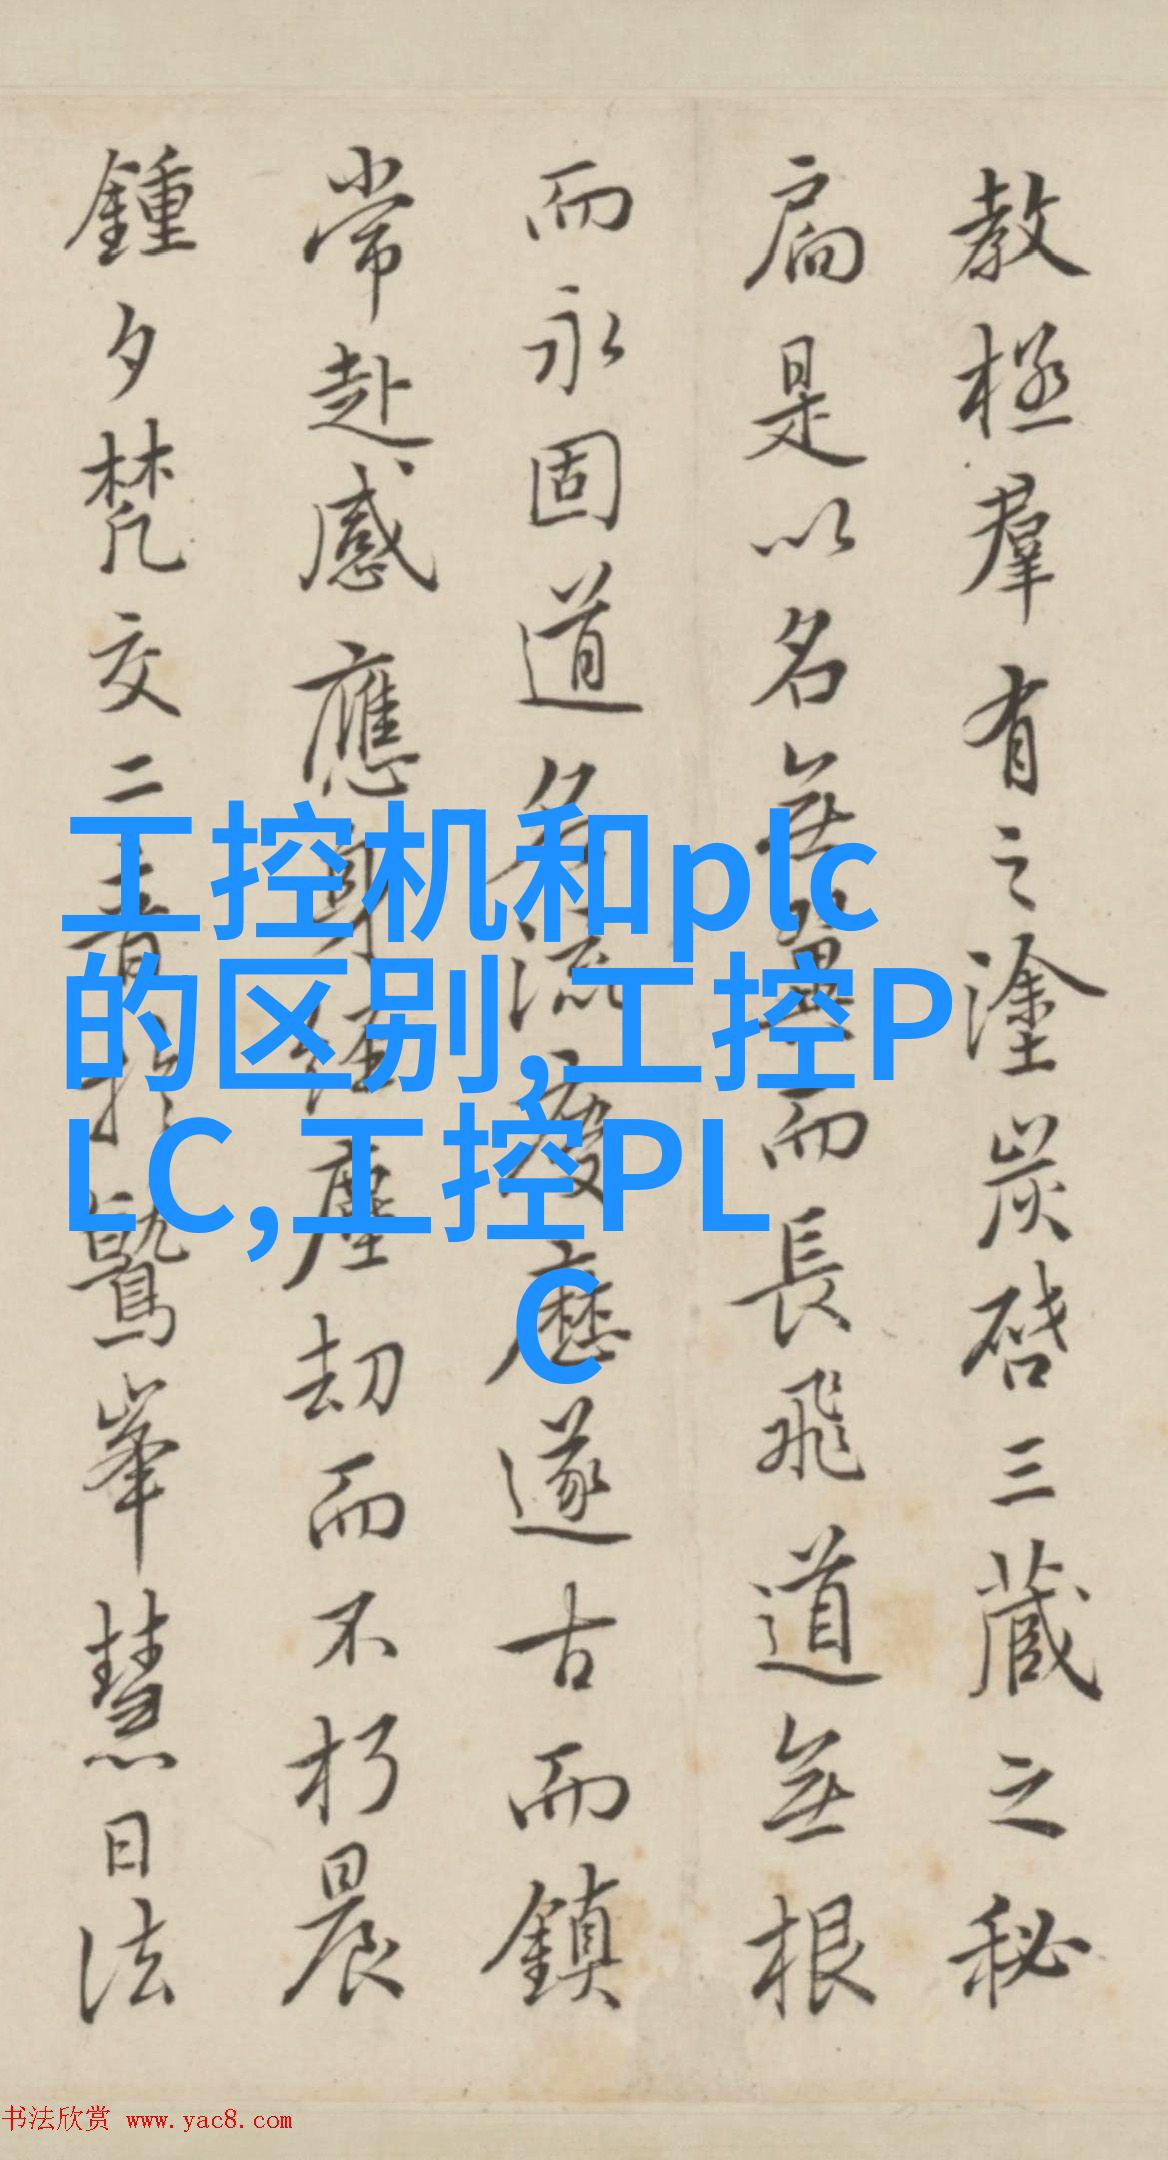 教極羣有之塗炭啓三藏之秘
扃是以名無翼而長飛道無根
而永固道名流慶歷遂古而鎮
常赴感應身經塵劫而不朽晨
鍾夕梵交二音於鷲峯慧日法
工控机和plc
的区别,工控P
LC,工控PL
C
书法欣赏 www.yac8.com